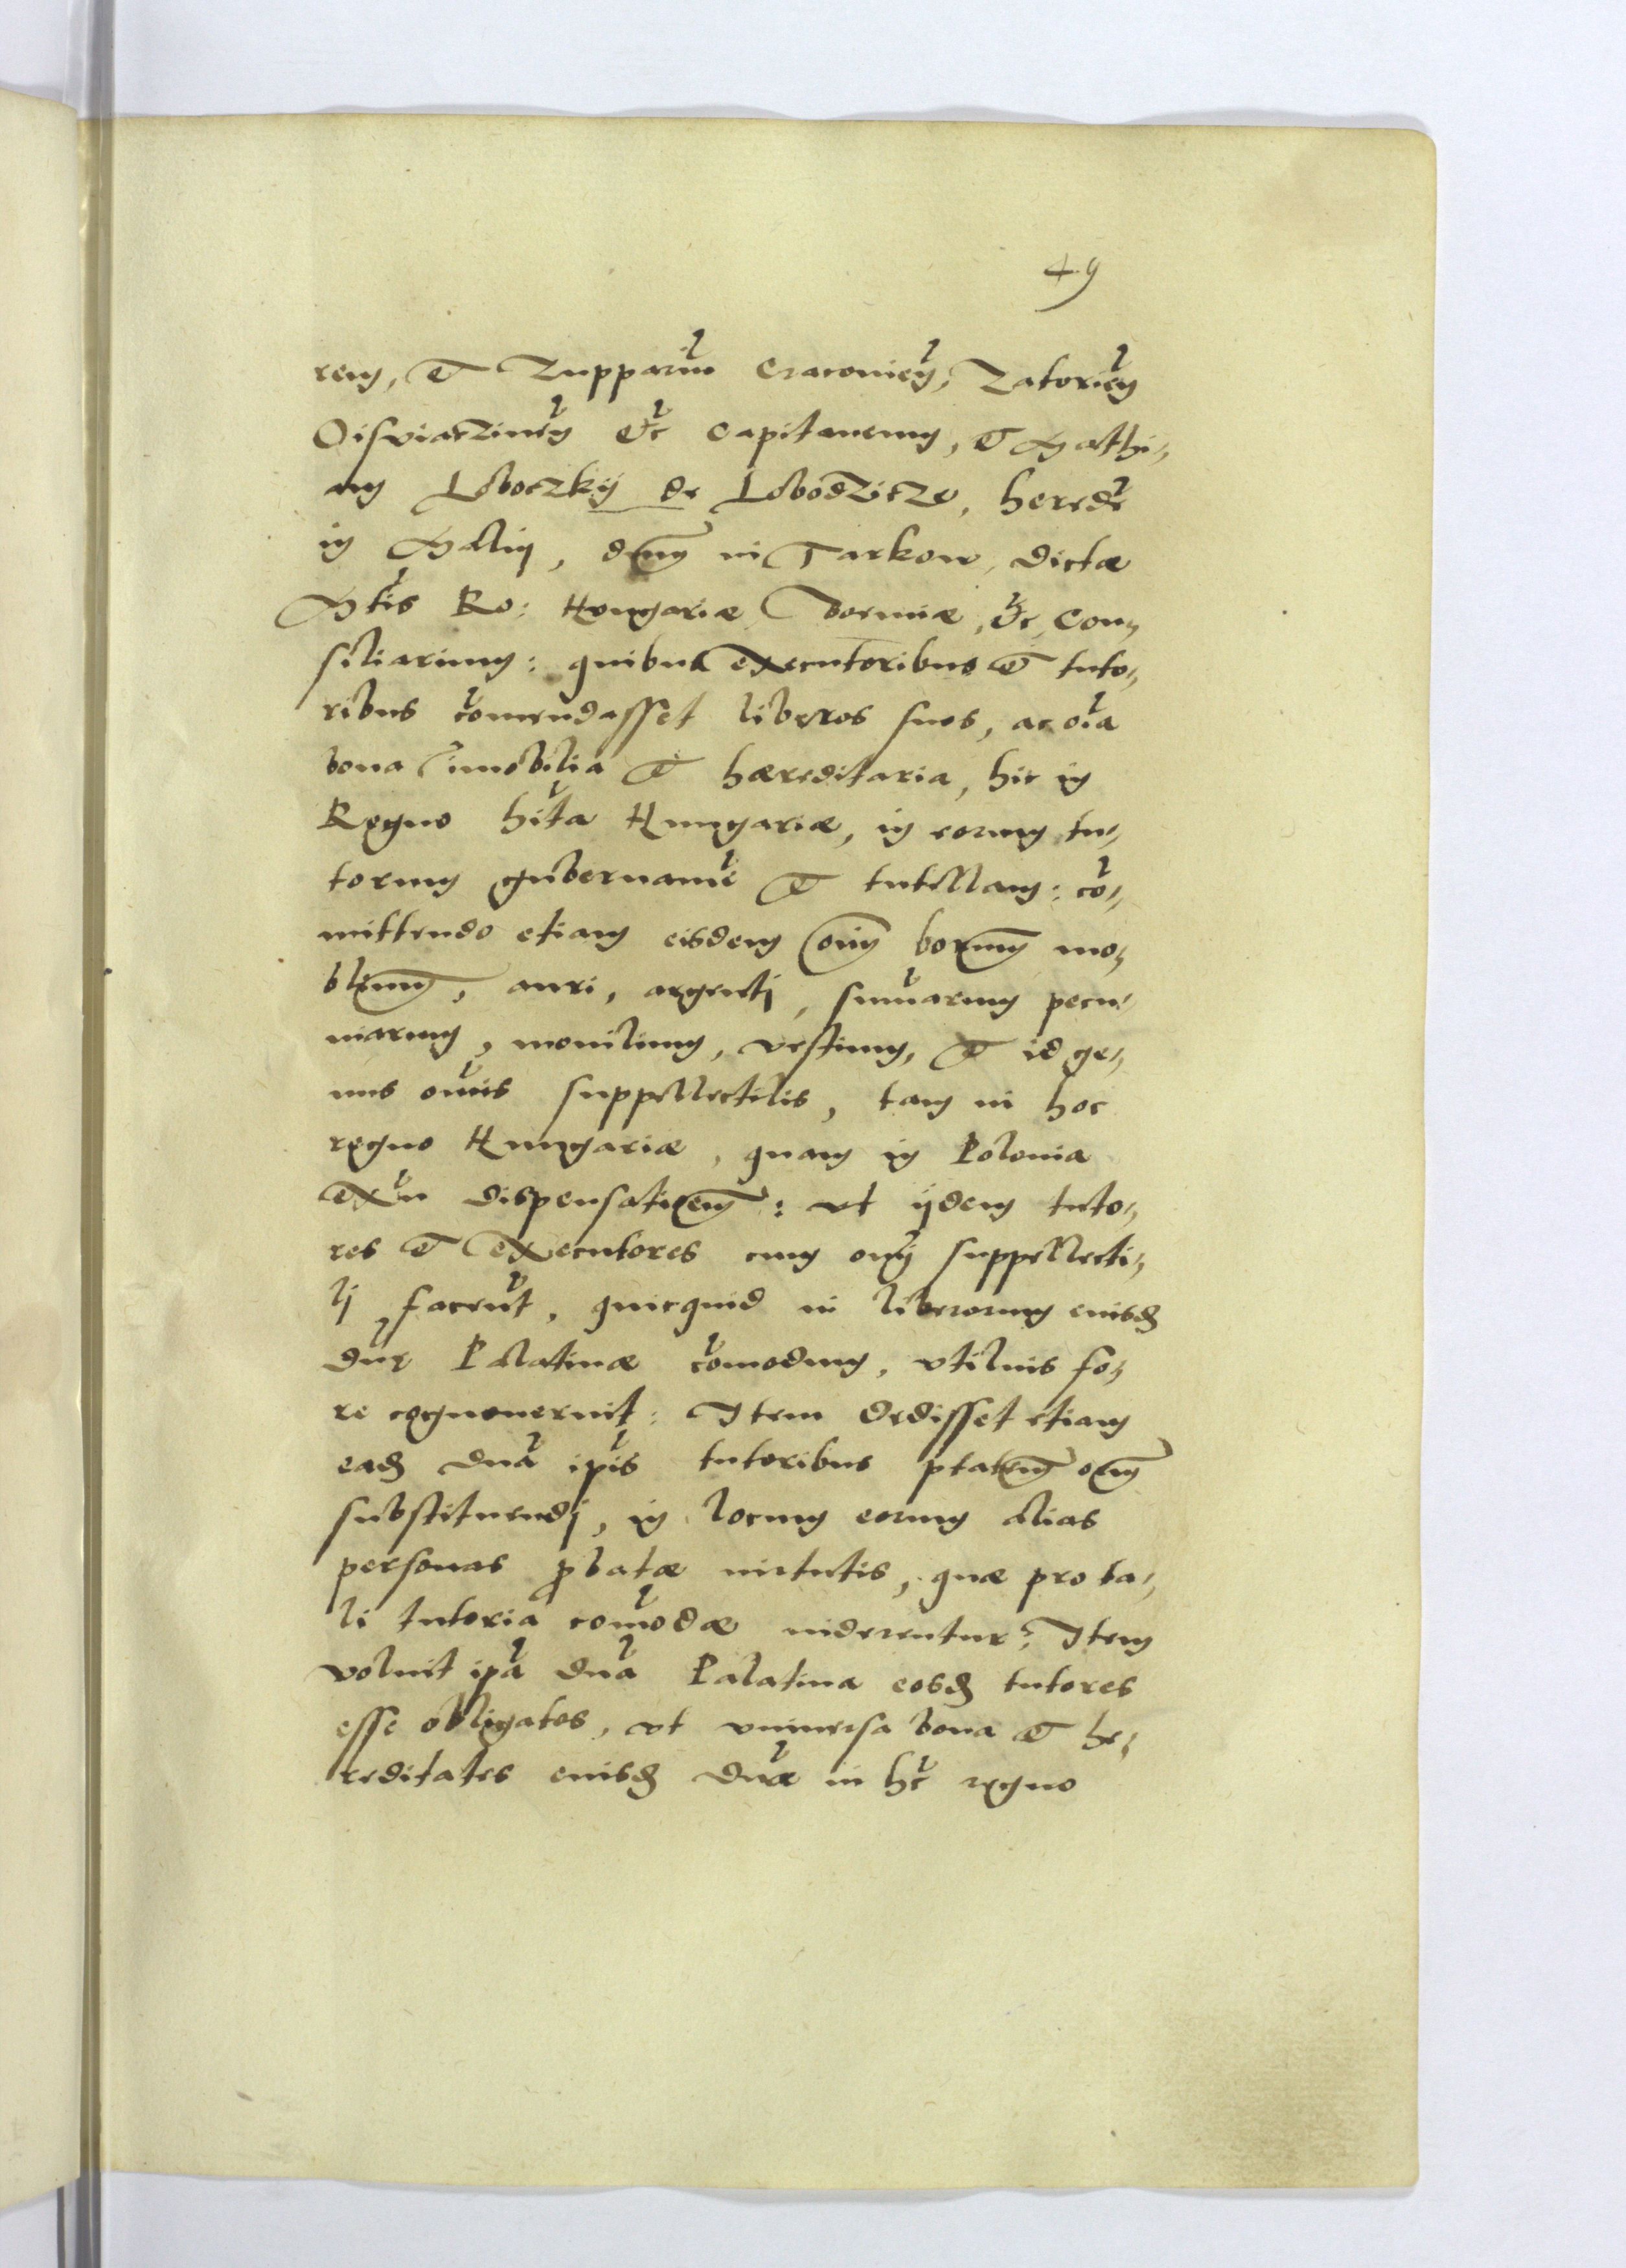 49
rem, et Zuppariũ Cracovieñ, Zatorieñ
Oisviaczimeñ etc̃ Capitaneum, et Mathi,,
am Loboczkÿ de Lobodzicze, heredẽ
in Mallin, dñum in Tarkow, dictæ
Mtis Ro: Hungariæ Boemiæ, etc, Con,,
siliarium: quibus executoribus et tuto,,
ribus cõmendasset liberos suos, ac oĩa
bona imobilia et hæreditaria, hic in
Regno hĩta Hungariæ, in eorum tu,,
torum gubernamẽ et tutellam: cõ,,
mittendo etiam eisdem oĩm borum mo,,
blium, auri, argenti, sum̃arum pecu,,
niarum, monilium, vestium, et id ge,,
nus om̃is suppellectilis, tam in hoc
regno Hungariæ, quam in Polonia
exñ dispensationem: vt ijdem tuto,,
res et executores cum omĩ suppellecti,,
lj faceñt, quicquid in liberorum eiusd
dñe Palatinæ cõmodum, vtilius fo,,
re cognoverint: Item dedisset etiam
ead dñã ip̃is tutoribus ptatem oem
substituendj, in locum eorum alias
personas pbatæ uirtutis, quæ pro ta,,
li tutoria com̃odæ uiderentur: Item
voluit ip̃a dñã Palatina eosd tutores
esse obligatos, vt vniuersa bona et he,,
reditates eiusd dñæ in hc̃ regno